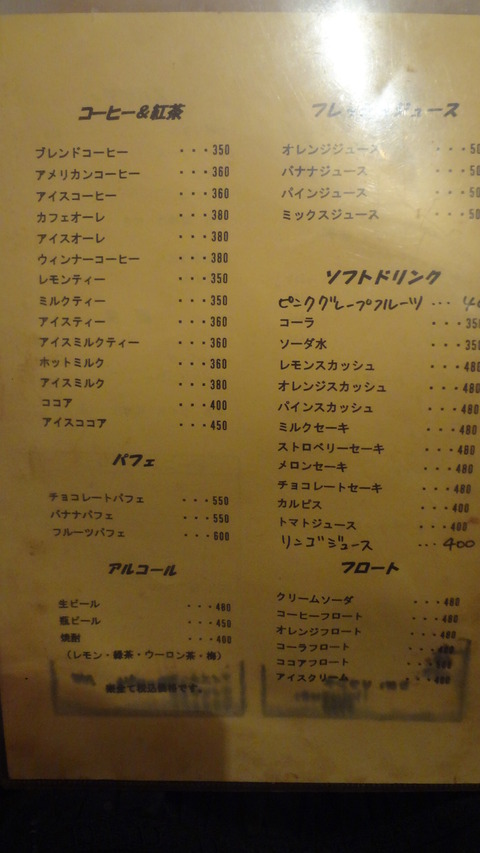 コーヒー&紅茶
ブレンドコーヒー ・・・350
アメリカンコーヒー ・・・360
アイスコーヒー ・・・360
カフェオーレ ・・・380
アイスオーレ ・・・380
ウィンナーコーヒー ・・・380
レモンティー ・・・350
ミルクティー ・・・350
アイスティー ・・・360
アイスミルクティー ・・・360
ホットミルク ・・・360
アイスミルク ・・・380
ココア ・・・400
アイスココア ・・・450
パフェ
チョコレートパフェ ・・・550
バナナパフェ ・・・550
フルーツパフェ ・・・600
アルコール
生ビール ・・・480
瓶ビール ・・・450
焼酎 ・・・400
(レモン・緑茶・ウーロン茶・梅)
※全て税込価格です。
ジュース
オレンジジュース ・・・50
バナナジュース ・・・50
パインジュース ・・・50
ミックスジュース ・・・50
ソフトドリンク
ピンクグレープフルーツ ・・・ 40
コーラ ・・・350
ソーダ水 ・・・350
レモンスカッシュ ・・・480
オレンジスカッシュ ・・・480
パインスカッシュ ・・・480
ミルクセーキ ・・・480
ストロベリーセーキ ・・・480
メロンセーキ ・・・480
チョコレートセーキ ・・・480
カルピス ・・・400
トマトジュース ・・・400
リンゴジュース ・・・400
フロート
クリームソーダ ・・・480
コーヒーフロート ・・・480
オレンジフロート ・・・480
コーラフロート ・・・480
ココアフロート
アイスクリーム ・・・400